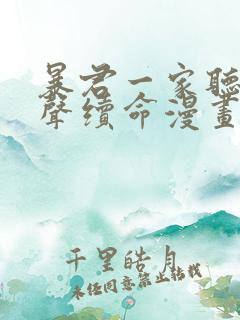 暴君一家聽
聲續命漫畫
千里皓月
未經同意禁止轉載